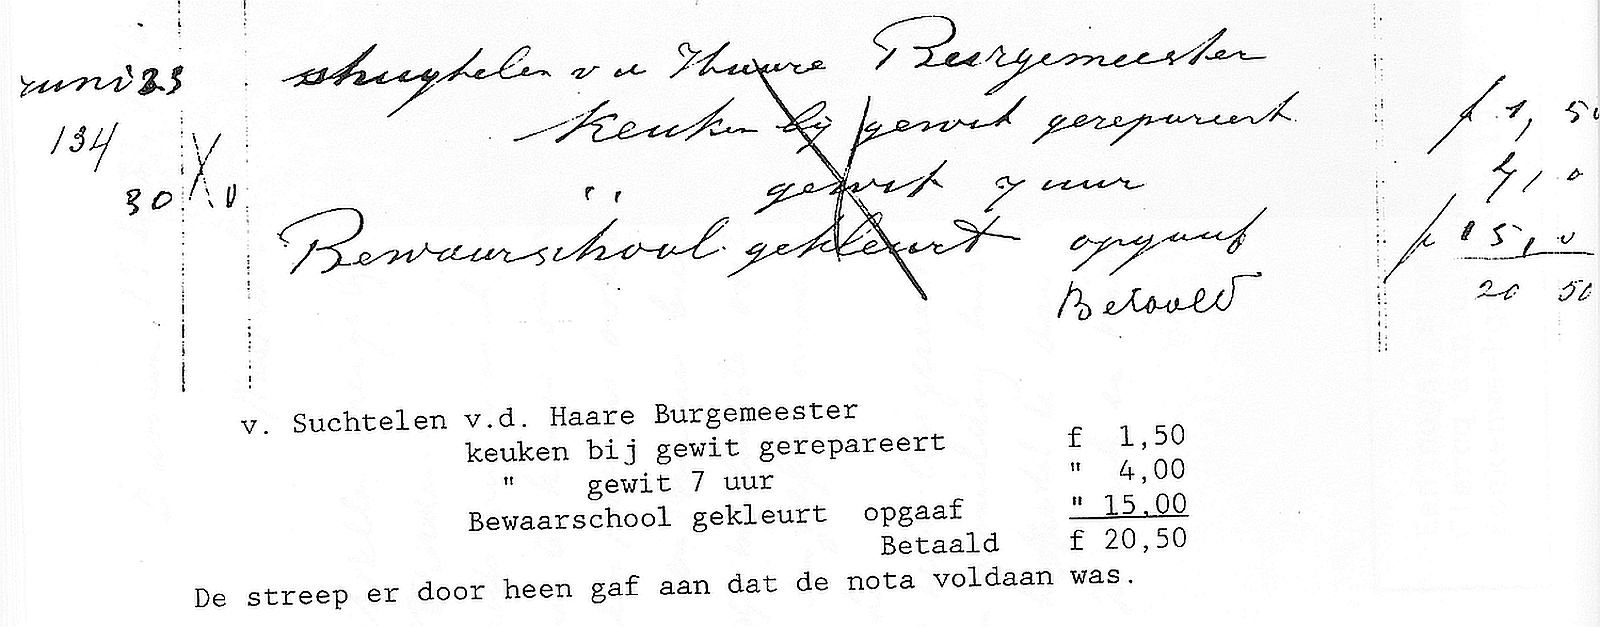 juni 23 shuytelen v d Haare Burgemeester
134 keuken bij gewit gerepareert f 1,50
30 " gewit 7 uur 4,0
Bewaarschool gekleurt opgaaf f 15,0
Betaald 20 50
v. Suchtelen v.d. Haare Burgemeester
keuken bij gewit gerepareert f 1,50
" gewit 7 uur " 4,00
Bewaarschool gekleurt opgaaf " 15,00
Betaald f 20,50
De streep er door heen gaf aan dat de nota voldaan was.